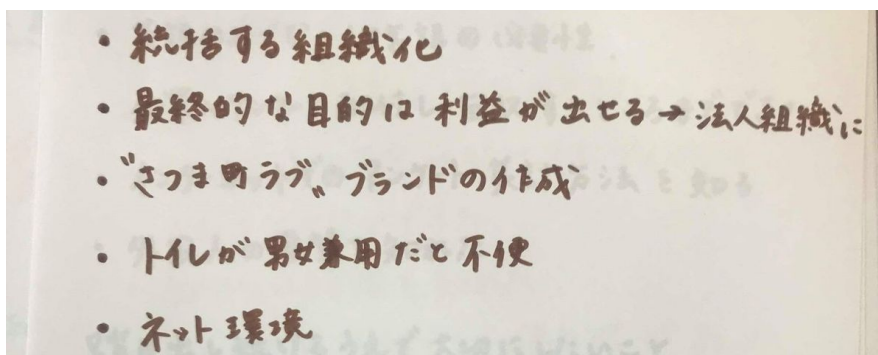 ・統括する組織化
・最終的な目的は利益が出せる→法人組織に
・"さつま町ラブ"ブランドの作成
・トイレが男女兼用だと不便
・ネット環境